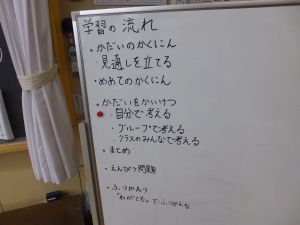 学習の流れ
・かだいのかくにん
・見通しを立てる
・めあてのかくにん
・かだいをかいけつ
・自分で考える
・グループで考える
・クラスのみんなで考える
・まとめ
・えんぴつ問題
・ふりかえり
「わがとも」でふりかえる